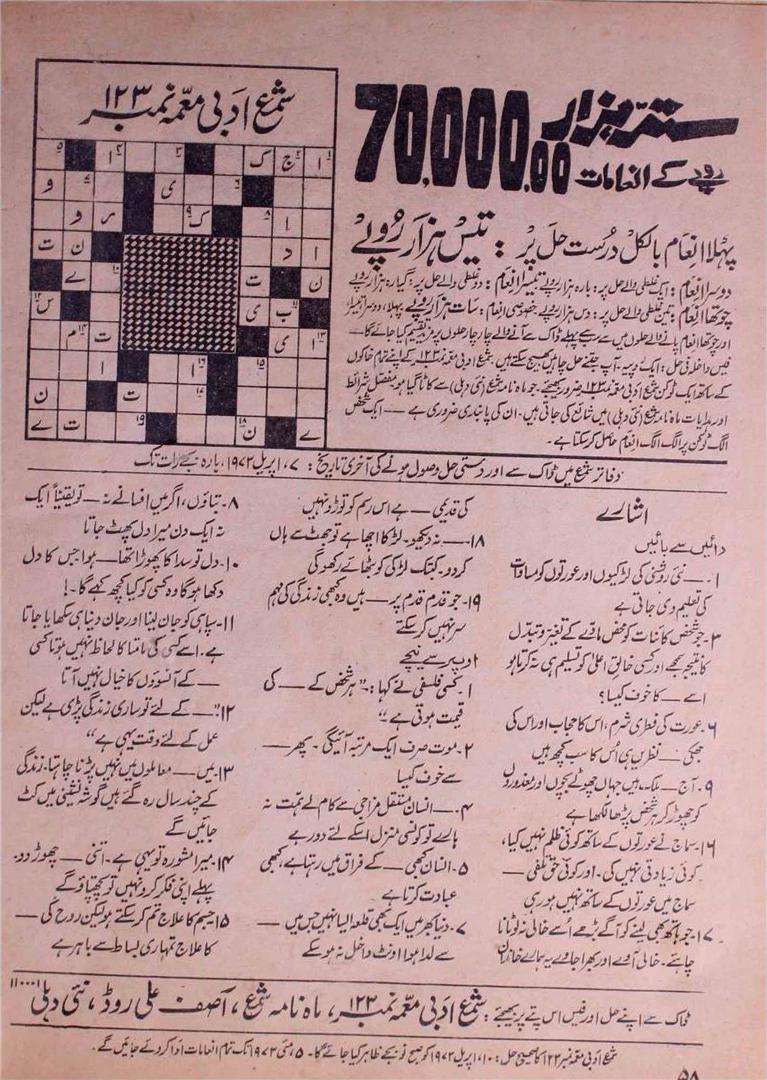 شمع ادبی معمّہ نمبر ۱۲۳
ستّر ہزار
70,000.00
روپے کے انعامات
پہلا انعام بالکل درست حل پر : تیس ہزار روپے
دوسرا انعام : ایک غلطی والے حل پر : بارہ ہزار روپے تیسرا انعام : دو غلطی والے حل پر : گیارہ ہزار روپے
چوتھا انعام : تین غلطی والے حل پر : دس ہزار روپے خصوصی انعام : سات ہزار روپے پہلا، دوسرا، تیسرا
اور چوتھا انعام پانے والے حلوں میں سے سب سے پہلے ڈاک سے آنے والے چار چار حلوں پر تقسیم کیا جائے گا۔
فیس داخلہ فی حل : ایک روپیہ۔ آپ جتنے حل چاہیں بھیج سکتے ہیں۔ شمع ادبی معمّہ نمبر ۱۲۳ کے اپنے تمام خاکوں
کے ساتھ ایک ٹوکن شمع ادبی معمّہ نمبر ۱۲۳ ضرور بھیجئے۔ جو ماہنامہ شمع (نئی دہلی) سے کاٹا گیا ہو مفصل شرائط
اور ہدایات ماہنامہ شمع (نئی دہلی) میں شائع کی جاتی ہیں۔ ان کی پابندی ضروری ہے — ایک شخص
الگ ٹوکن پر الگ الگ انعام حاصل کر سکتا ہے۔
دفاتر شمع میں ڈاک سے اور دستی حل وصول ہونے کی آخری تاریخ : ۷، اپریل ۱۹۷۲، بارہ بجے رات تک
اشارے
دائیں سے بائیں
۱۔ — نئی روشنی کی لڑکیوں اور عورتوں کو مساوات
کی تعلیم دی جاتی ہے
۳۔ جو شخص کائنات کو محض مادّے کے تغیر و تبدل
کا نتیجہ سمجھے اور کسی خالقِ اعلیٰ کو تسلیم ہی نہ کرتا ہو
اسے — کا خوف کیسا؟
۶۔ عورت کی فطری شرم، اس کا حجاب اور اس کی
جھکی — نظریں ہی اُس کا سب کچھ ہیں
۹۔ آج — ملک ہیں جہاں چھوٹے بچوں اور معذوروں
کو چھوڑ کر ہر شخص پڑھا لکھا ہے
۱۶۔ سماج نے عورتوں کے ساتھ کوئی ظلم نہیں کیا،
کوئی زیادتی نہیں کی۔ اور کوئی حق تلفی —
سماج میں عورتوں کے ساتھ نہیں ہو رہی
۱۷۔ جو ہاتھ بھی لینے کو آگے بڑھے اُسے خالی نہ لوٹانا
چاہئے۔ خالی آوے اور بھرا جاوے یہ ہمارے خاندان
کی قدیمی — ہے اس رسم کو توڑو نہیں
۱۸۔ — نہ دیکھو۔ لڑکا اچھا ہے تو جھٹ سے ہاں
کردو۔ کب تک لڑکی کو بٹھائے رکھو گی
۱۹۔ جو قدم قدم پر — ہیں وہ کبھی زندگی کی مہم
سر نہیں کر سکتے
اوپر سے نیچے
۱۔ کسی فلسفی نے کہا : "ہر شخص کے — کی
قیمت ہوتی ہے"
۲۔ موت صرف ایک مرتبہ آئیگی۔ پھر —
سے خوف کیسا
۴۔ — انسان مستقل مزاجی سے کام لے ہمت نہ
ہارے تو کونسی منزل اسکے لئے دور ہے
۵۔ انسان کبھی — کے فراق میں رہتا ہے، کبھی
عبادت کرتا ہے
۷۔ دنیا بھر میں ایک بھی قلعہ ایسا نہیں جس میں —
سے لدا ہوا اونٹ داخل نہ ہو سکے
۸۔ بتاؤں، اگر میں افسانے نہ — تو یقیناً ایک
نہ ایک دن میرا دل پھٹ جاتا
۱۰۔ دل تو سدا کا پھوڑا تھا — ہوا جس کا دل
دکھا ہوگا وہ کسی کو کیا کچھ کہے گا۔!
۱۱۔ سپاہی کو جان لینا اور جان دینا ہی سکھایا جاتا
ہے۔ اسے کسی کی مامتا کا لحاظ نہیں ہوتا کسی
— کے آنسوؤں کا خیال نہیں آتا
۱۲۔ "— کے لئے تو ساری زندگی پڑی ہے لیکن
عمل کے لئے وقت یہی ہے"
۱۳۔ میں — معاملوں میں نہیں پڑنا چاہتا۔ زندگی
کے چند سال رہ گئے ہیں گوشہ نشینی میں کٹ
جائیں گے
۱۴۔ میرا مشورہ تو یہی ہے۔ اتنی — چھوڑ دو۔
پہلے اپنی فکر کرو نہیں تو پچھتاؤ گے
۱۵۔ جسم کا علاج تم کر سکتے ہو لیکن روح کی —
کا علاج تمہاری بساط سے باہر ہے
ڈاک سے اپنے حل اور فیس اس پتے پر بھیجئے : شمع ادبی معمّہ نمبر ۱۲۳، ماہنامہ شمع، آصف علی روڈ، نئی دہلی ۱۱۰۰۰۱
شمع ادبی معمّہ نمبر ۱۲۳ کا صحیح حل : ۱۰، اپریل ۱۹۷۲ کو صبح نو بجے ظاہر کیا جائے گا۔ ۵، مئی ۱۹۷۲ تک تمام انعامات ادا کر دئے جائیں گے۔
۵۸